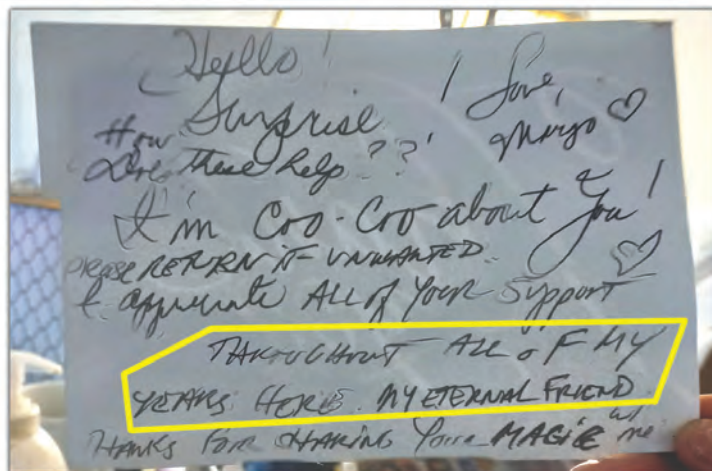 Hello!
Surprise!
Love,
Margo ♡
How
Does these help???
I'm Coo-Coo about You!
please RETURN IF UNWANTED.
I appreciate ALL of your support ♡
THROUGHOUT ALL OF MY
YEARS HERE. MY ETERNAL FRIEND.
THANKS FOR SHARING Your MAGIC w/ me